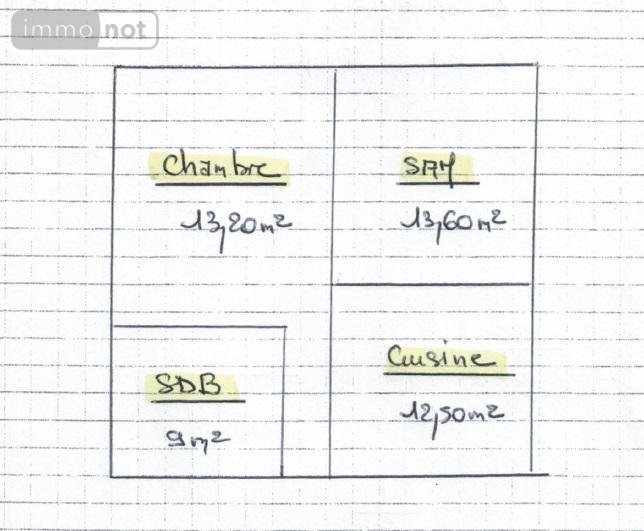 immo not
Chambre
13,20m²
SAM
13,60m²
SDB
9m²
Cuisine
12,50m²